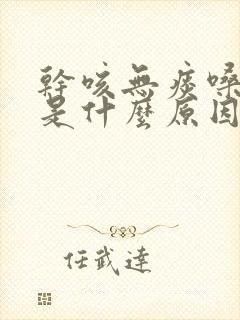 幹咳無痰嗓
是什麼原因
任武達